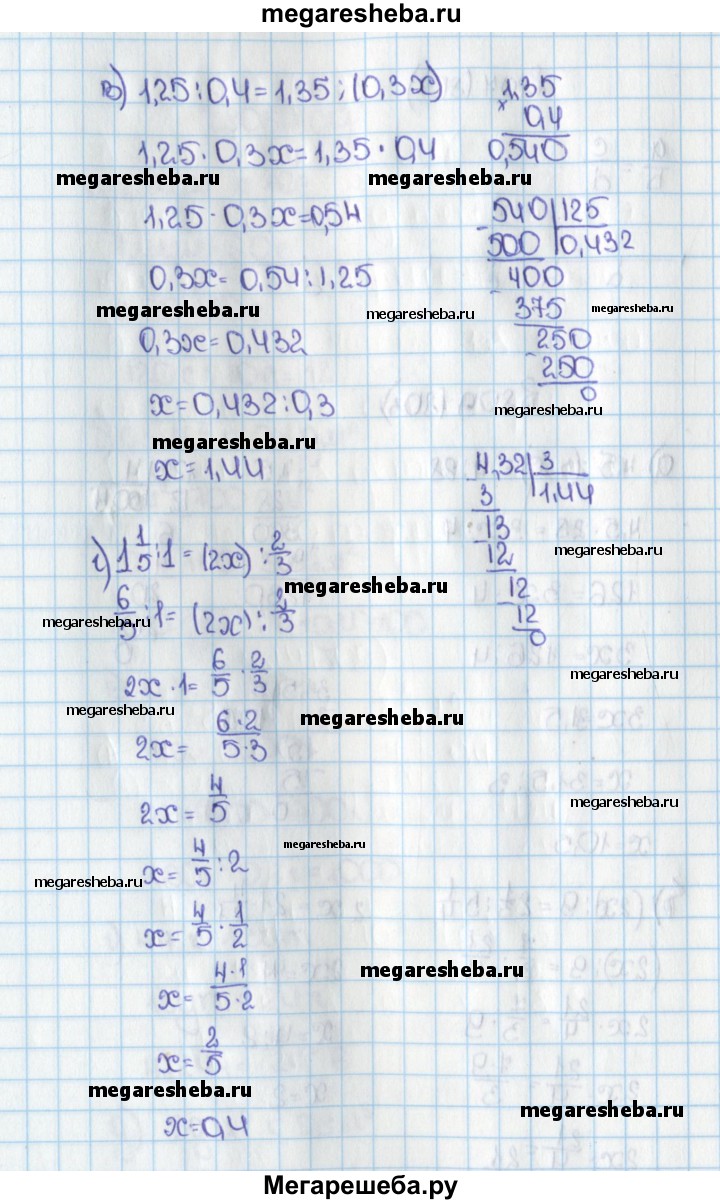 megaresheba.ru
в) 1,25 : 0,4 = 1,35 : (0,3x)
1,35
× 0,4
0,540
1,25 · 0,3x = 1,35 · 0,4
megaresheba.ru megaresheba.ru
1,25 · 0,3x = 0,54
540 | 125
- 500 | 0,432
400
- 375
250
- 250
0
0,3x = 0,54 : 1,25
megaresheba.ru megaresheba.ru megaresheba.ru
0,3x = 0,432
x = 0,432 : 0,3
megaresheba.ru
megaresheba.ru
x = 1,44
4,32 | 3
- 3 | 1,44
13
- 12
12
- 12
0
г) 1 1/5 : 1 = (2x) : 2/3
megaresheba.ru megaresheba.ru
6/5 : 1 = (2x) : 2/3
megaresheba.ru
megaresheba.ru
2x · 1 = 6/5 · 2/3
megaresheba.ru megaresheba.ru
2x = 6·2/5·3
2x = 4/5
megaresheba.ru
megaresheba.ru
x = 4/5 : 2
megaresheba.ru
x = 4/5 · 1/2
megaresheba.ru
x = 4·1/5·2
x = 2/5
megaresheba.ru
megaresheba.ru
x = 0,4
Мегарешеба.ру